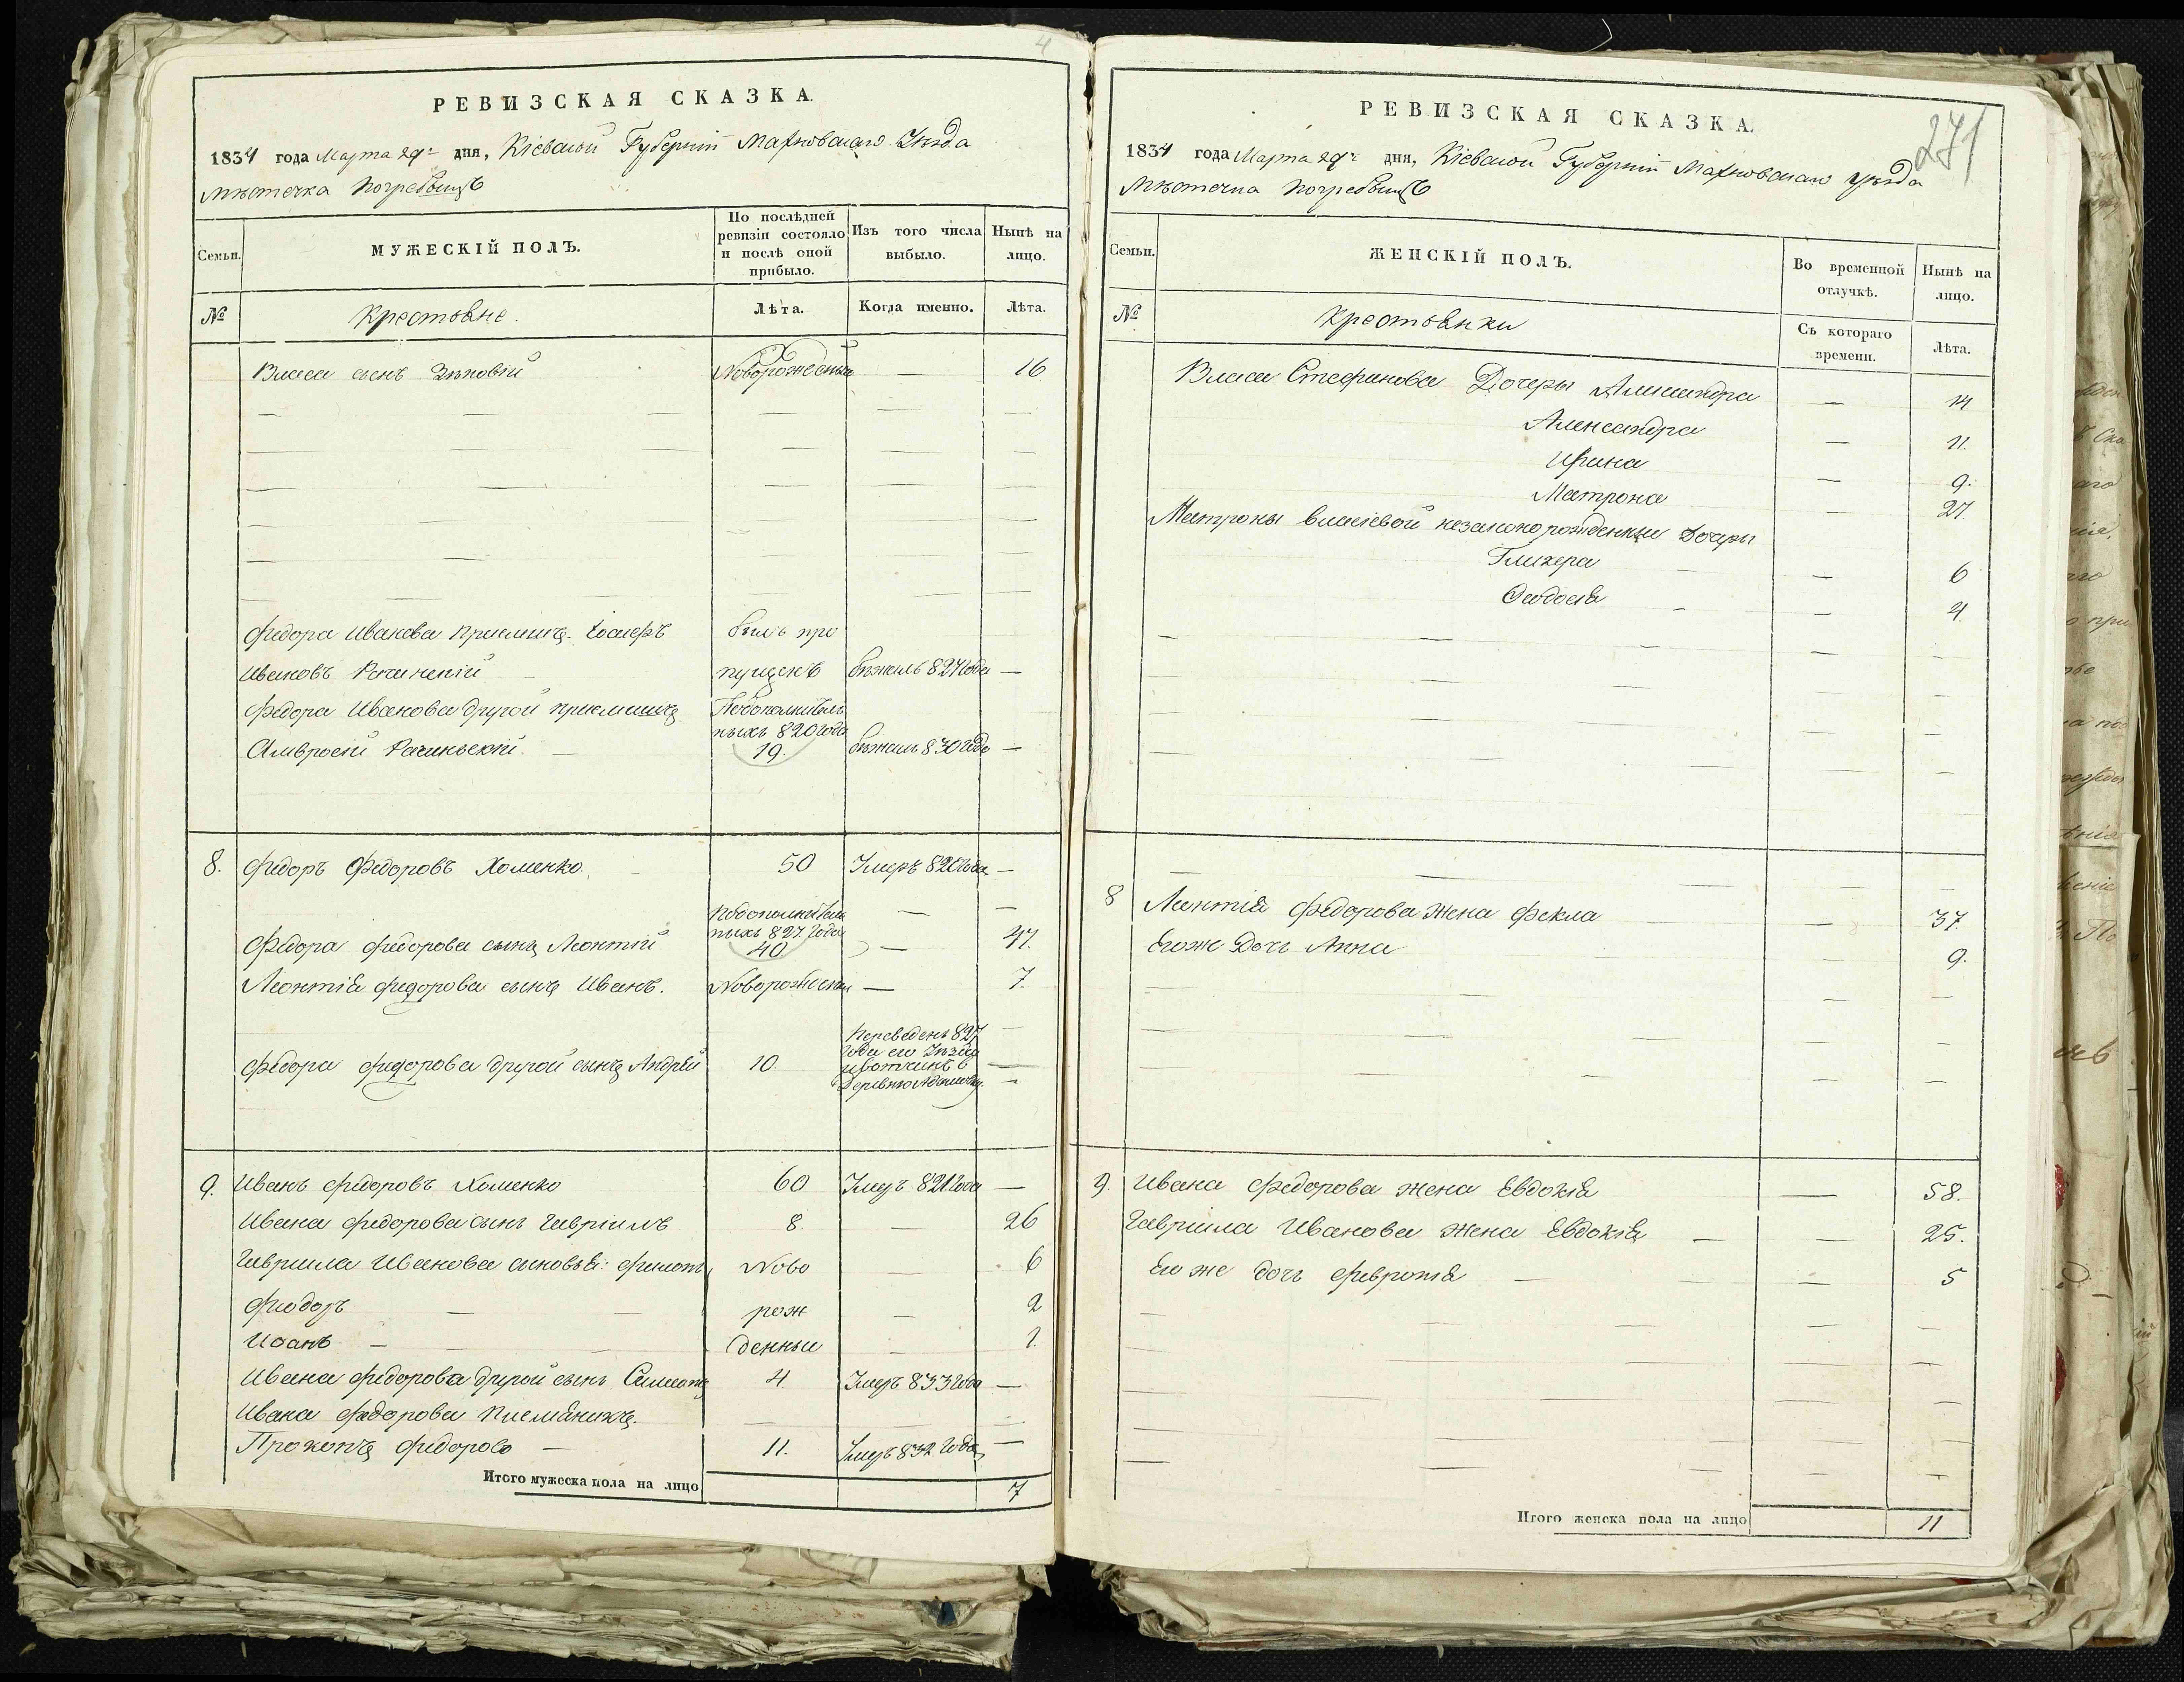 4
РЕВИЗСКАЯ СКАЗКА.
1834 года Марта 29го дня, Кіевской Губерніи Махновскаго Уѣзда
Мѣстечка Погребыщъ
Семьи.
МУЖЕСКІЙ ПОЛЪ.
По послѣдней ревизіи состояло и послѣ оной прибыло.
Изъ того числа выбыло.
Нынѣ на лицо.
№
Крестьяне.
Лѣта.
Когда именно.
Лѣта.
Власа сынъ Зѣновій Новорожденный — 16
Федора Иванова приемышъ Іосифъ былъ про
Ивановъ пущенъ бѣжалъ 827 года —
Федора Иванова другой приемышъ Подополнитель
ныхъ 820 года
Амвросій 19. бѣжалъ 830 года —
8. Федоръ Федоровъ Хоменко 50 Умеръ 820 года —
Подополнитель
ныхъ 827 года
Федора Федорова сынъ Леонтій 40 — 47.
Леонтія Федорова сынъ Иванъ. Новорожденный — 7.
Переведенъ 827
года
Федора Федорова другой сынъ Андрей 10.
9. Иванъ Федоровъ Хоменко 60 Умеръ 821 года —
Ивана Федорова сынъ Гавріилъ 8. — 26
Гавриила Иванова сыновья: Филипъ Ново — 6
Феодоръ рож — 2
Иоанъ денныи — 1.
Ивана Федорова другой сынъ Симеонъ 4. Умеръ 833 года —
Ивана Федорова племѣникъ.
Прокопъ Федоровъ — 11. Умеръ 832 года —
Итого мужеска пола на лицо 7
271
РЕВИЗСКАЯ СКАЗКА.
1834 года Марта 29го дня, Кіевской Губерніи Махновскаго Уѣзда
Мѣстечка Погребыщъ
Семьи.
ЖЕНСКІЙ ПОЛЪ.
Во временной отлучкѣ.
Нынѣ на лицо.
№
Крестьянки
Съ котораго времени.
Лѣта.
Власа Стефанова Дочеры Александра — 14
Александра — 11.
Ирина — 9.
Матрона — 27.
Матроны Власіевой незаконорожденные Дочеры
Гликера — 6
Феодосія — 4.
8 Леонтія Федорова жена Фекла — 37.
Егоже Дочь Анна 9.
9. Ивана Федорова жена Евдокія — 58.
Гавріила Иванова жена Евдокія — 25.
Его же дочь Февронія — 5
Итого женска пола на лицо 11